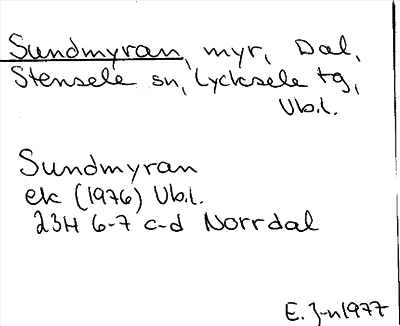 Sundmyran, myr, Dal,
Stensele sn, Lycksele tg,
Vb.l.
Sundmyran
ek (1976) Vb.l.
23H 6-7 c-d Norrdal
E. J-n 1977